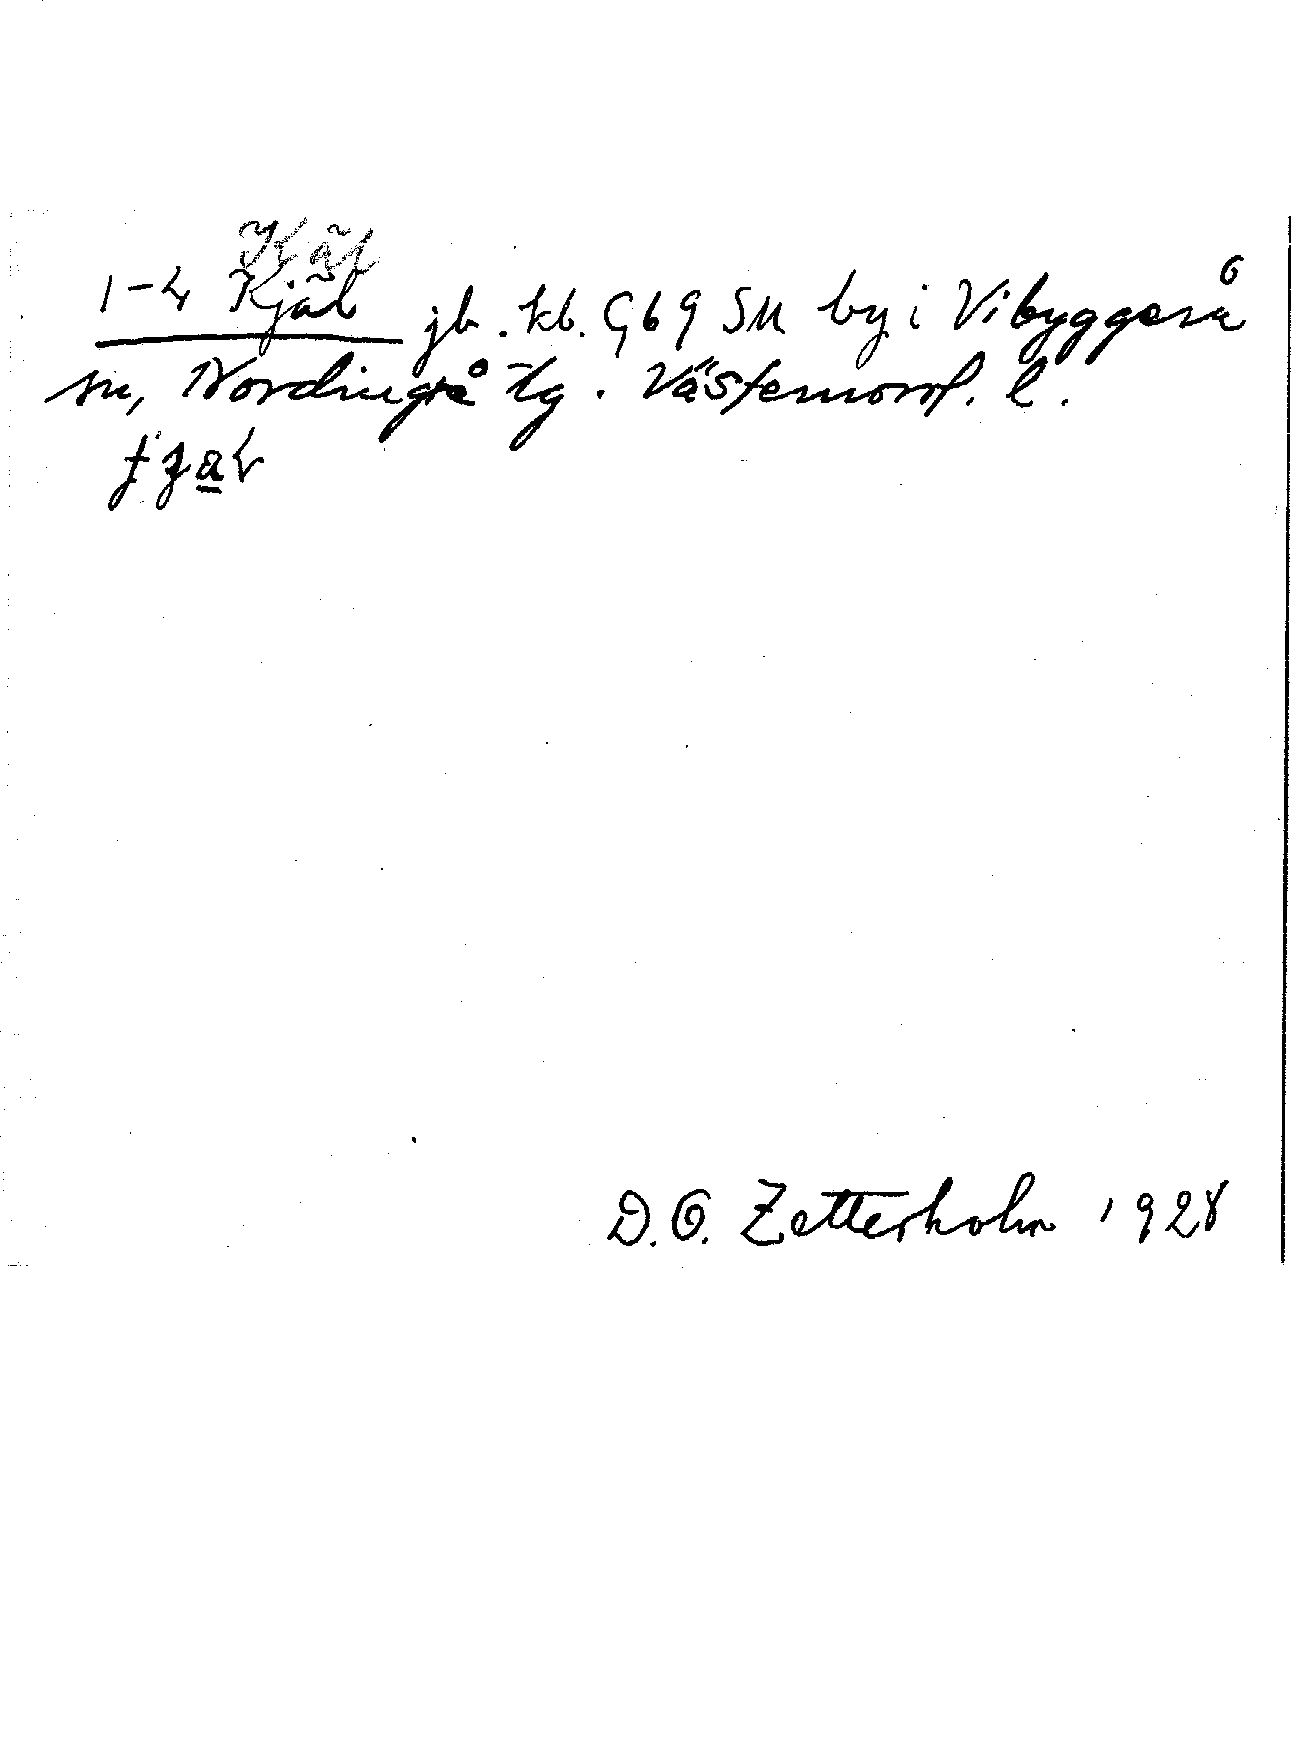 Käl
1-4 Kjäl jb. kb. G69 SM by i Vibyggerå
sn, Nordingrå tg. Västernorrl. l.
D.O. Zetterholm 1928